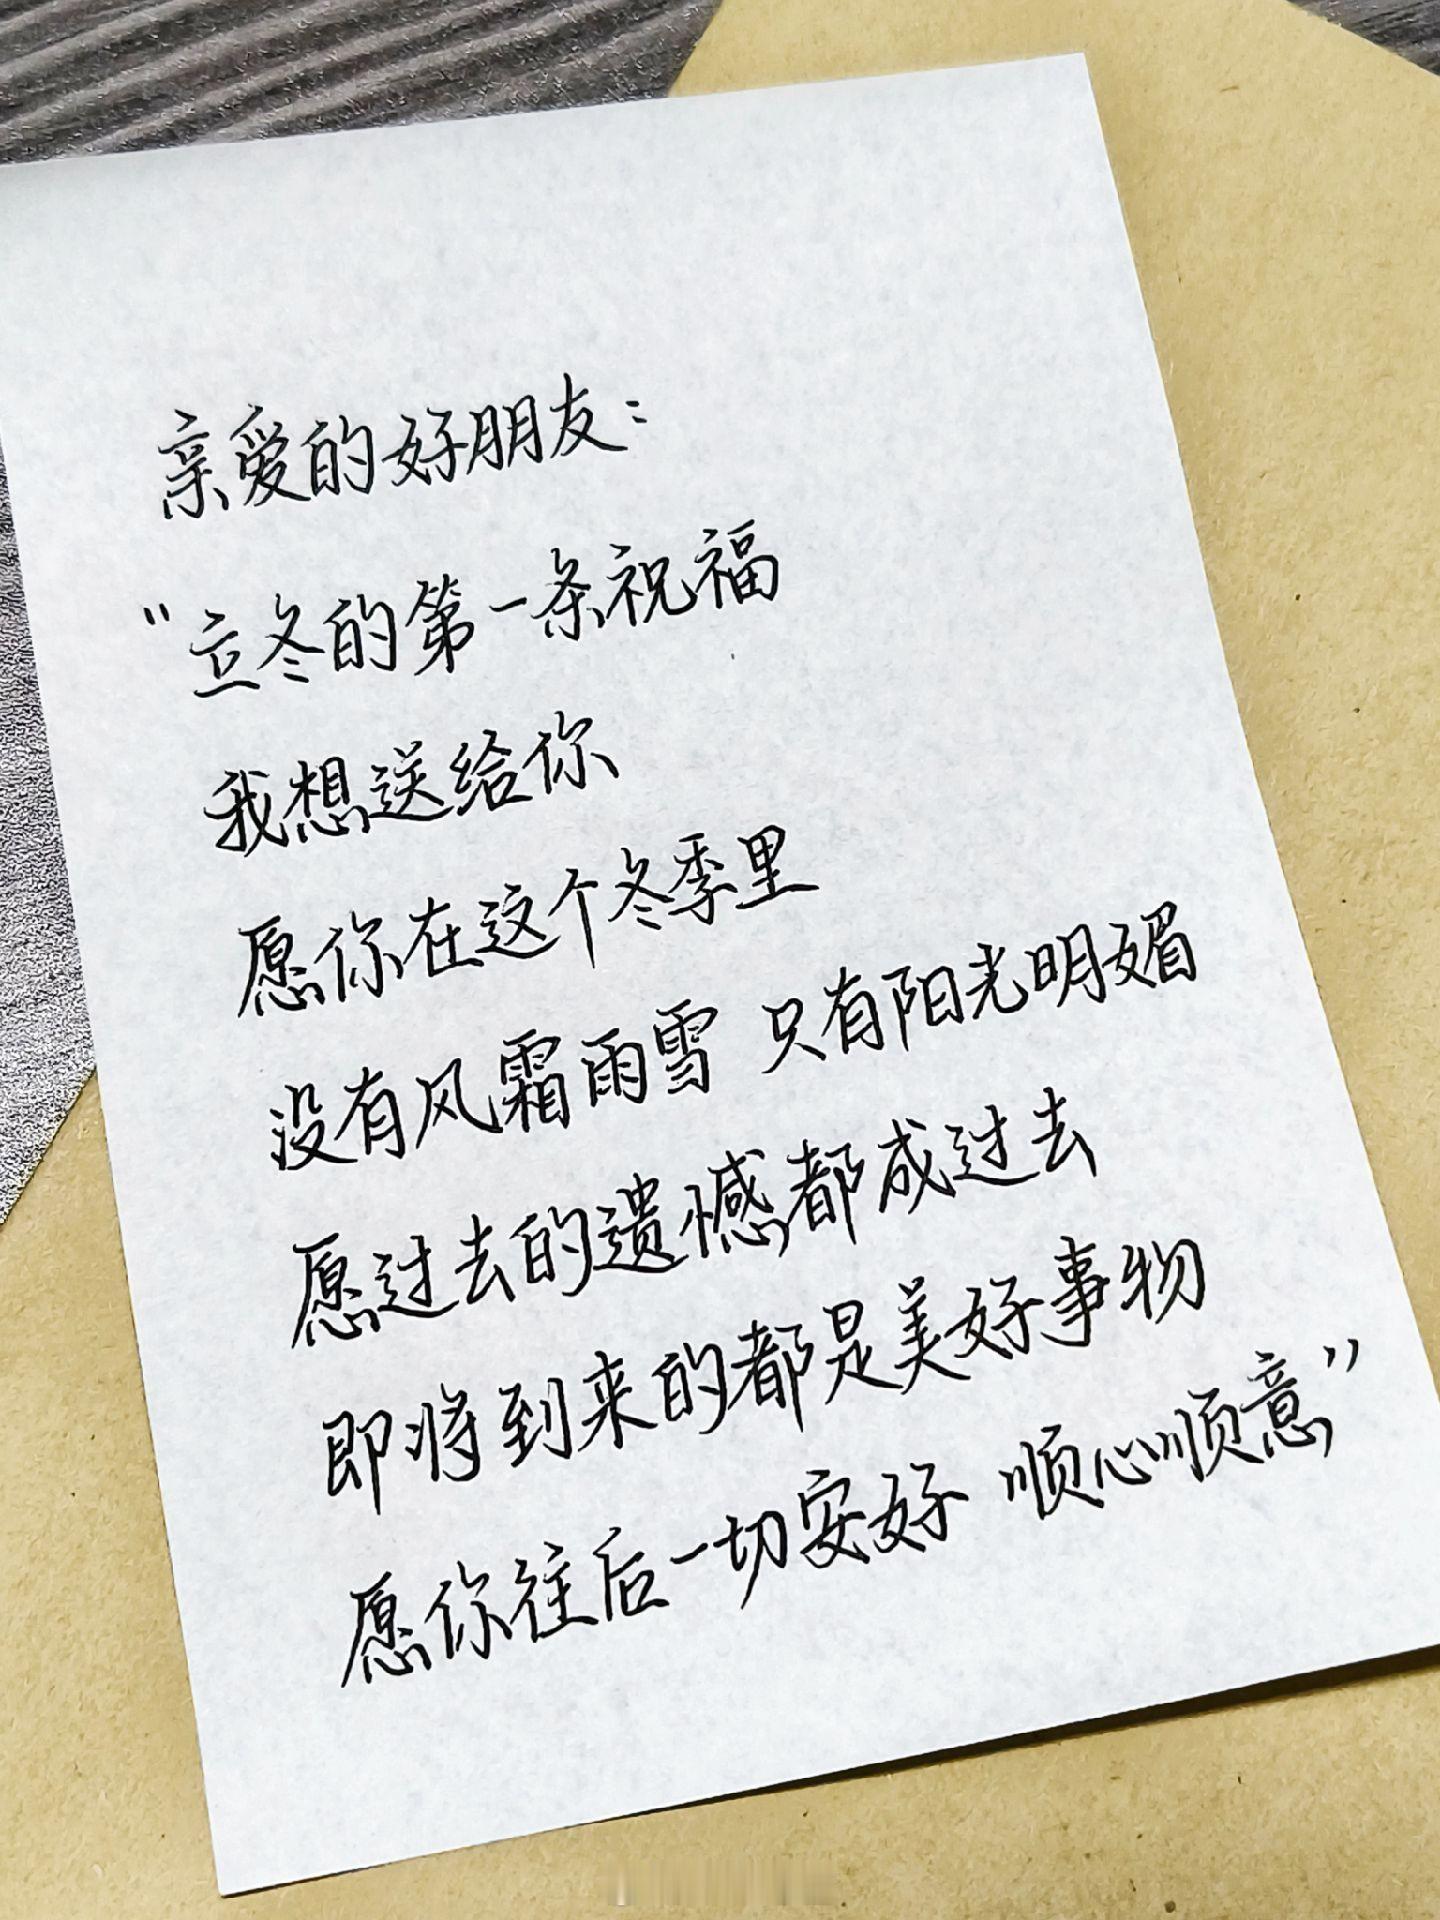 亲爱的好朋友：
“立冬的第一条祝福
我想送给你
愿你在这个冬季里
没有风霜雨雪 只有阳光明媚
愿过去的遗憾都成过去
即将到来的都是美好事物
愿你往后一切安好 顺心顺意”